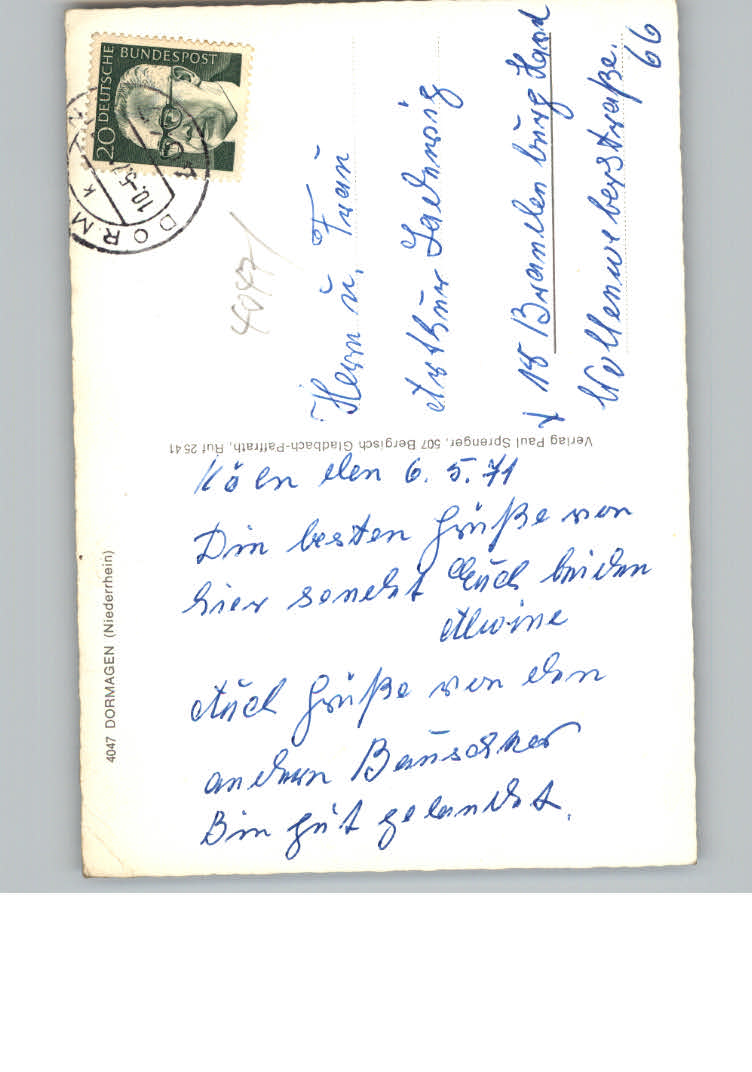 Köln den 6. 5. 71
Die besten Grüße von
hier sendet Euch beiden
Alwine
Auch Grüße von den
andern
Bin gut gelandet.
Herrn u. Frau
Arthur Ladewig
18 Brandenburg Havel
Wollenweberstraße.
66
20 DEUTSCHE BUNDESPOST
DORM
10.-5.7
40471
Verlag Paul Sprenger, 507 Bergisch Gladbach-Paffrath, Ruf 2541
4047 DORMAGEN (Niederrhein)